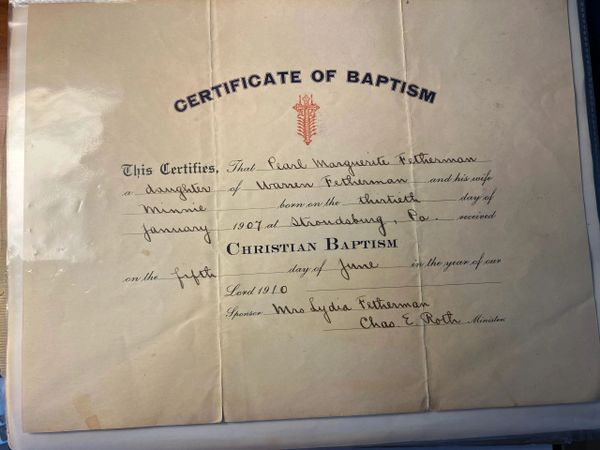 CERTIFICATE OF BAPTISM
This Certifies, That Pearl Marguerite Fetherman
a daughter of Warren Fetherman and his wife
Minnie born on the thirtieth day of
January 1907 at Stroudsburg, Pa. received
CHRISTIAN BAPTISM
on the fifth day of June in the year of our
Lord 1910
Sponsor Mrs Lydia Fetherman
Chas E. Roth Minister.